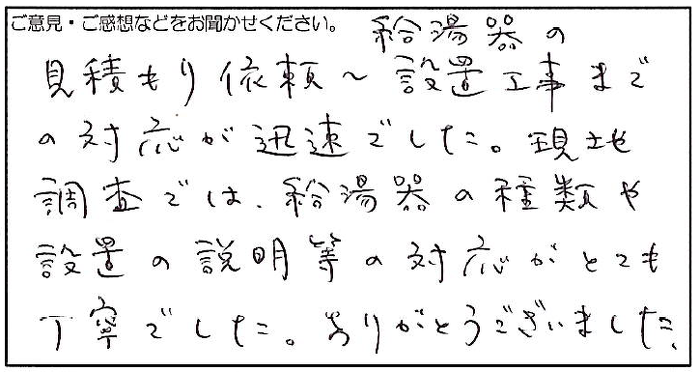 ご意見・ご感想などをお聞かせください。 給湯器の
見積もり依頼～設置工事まで
の対応が迅速でした。現地
調査では、給湯器の種類や
設置の説明等の対応がとても
丁寧でした。ありがとうございました。